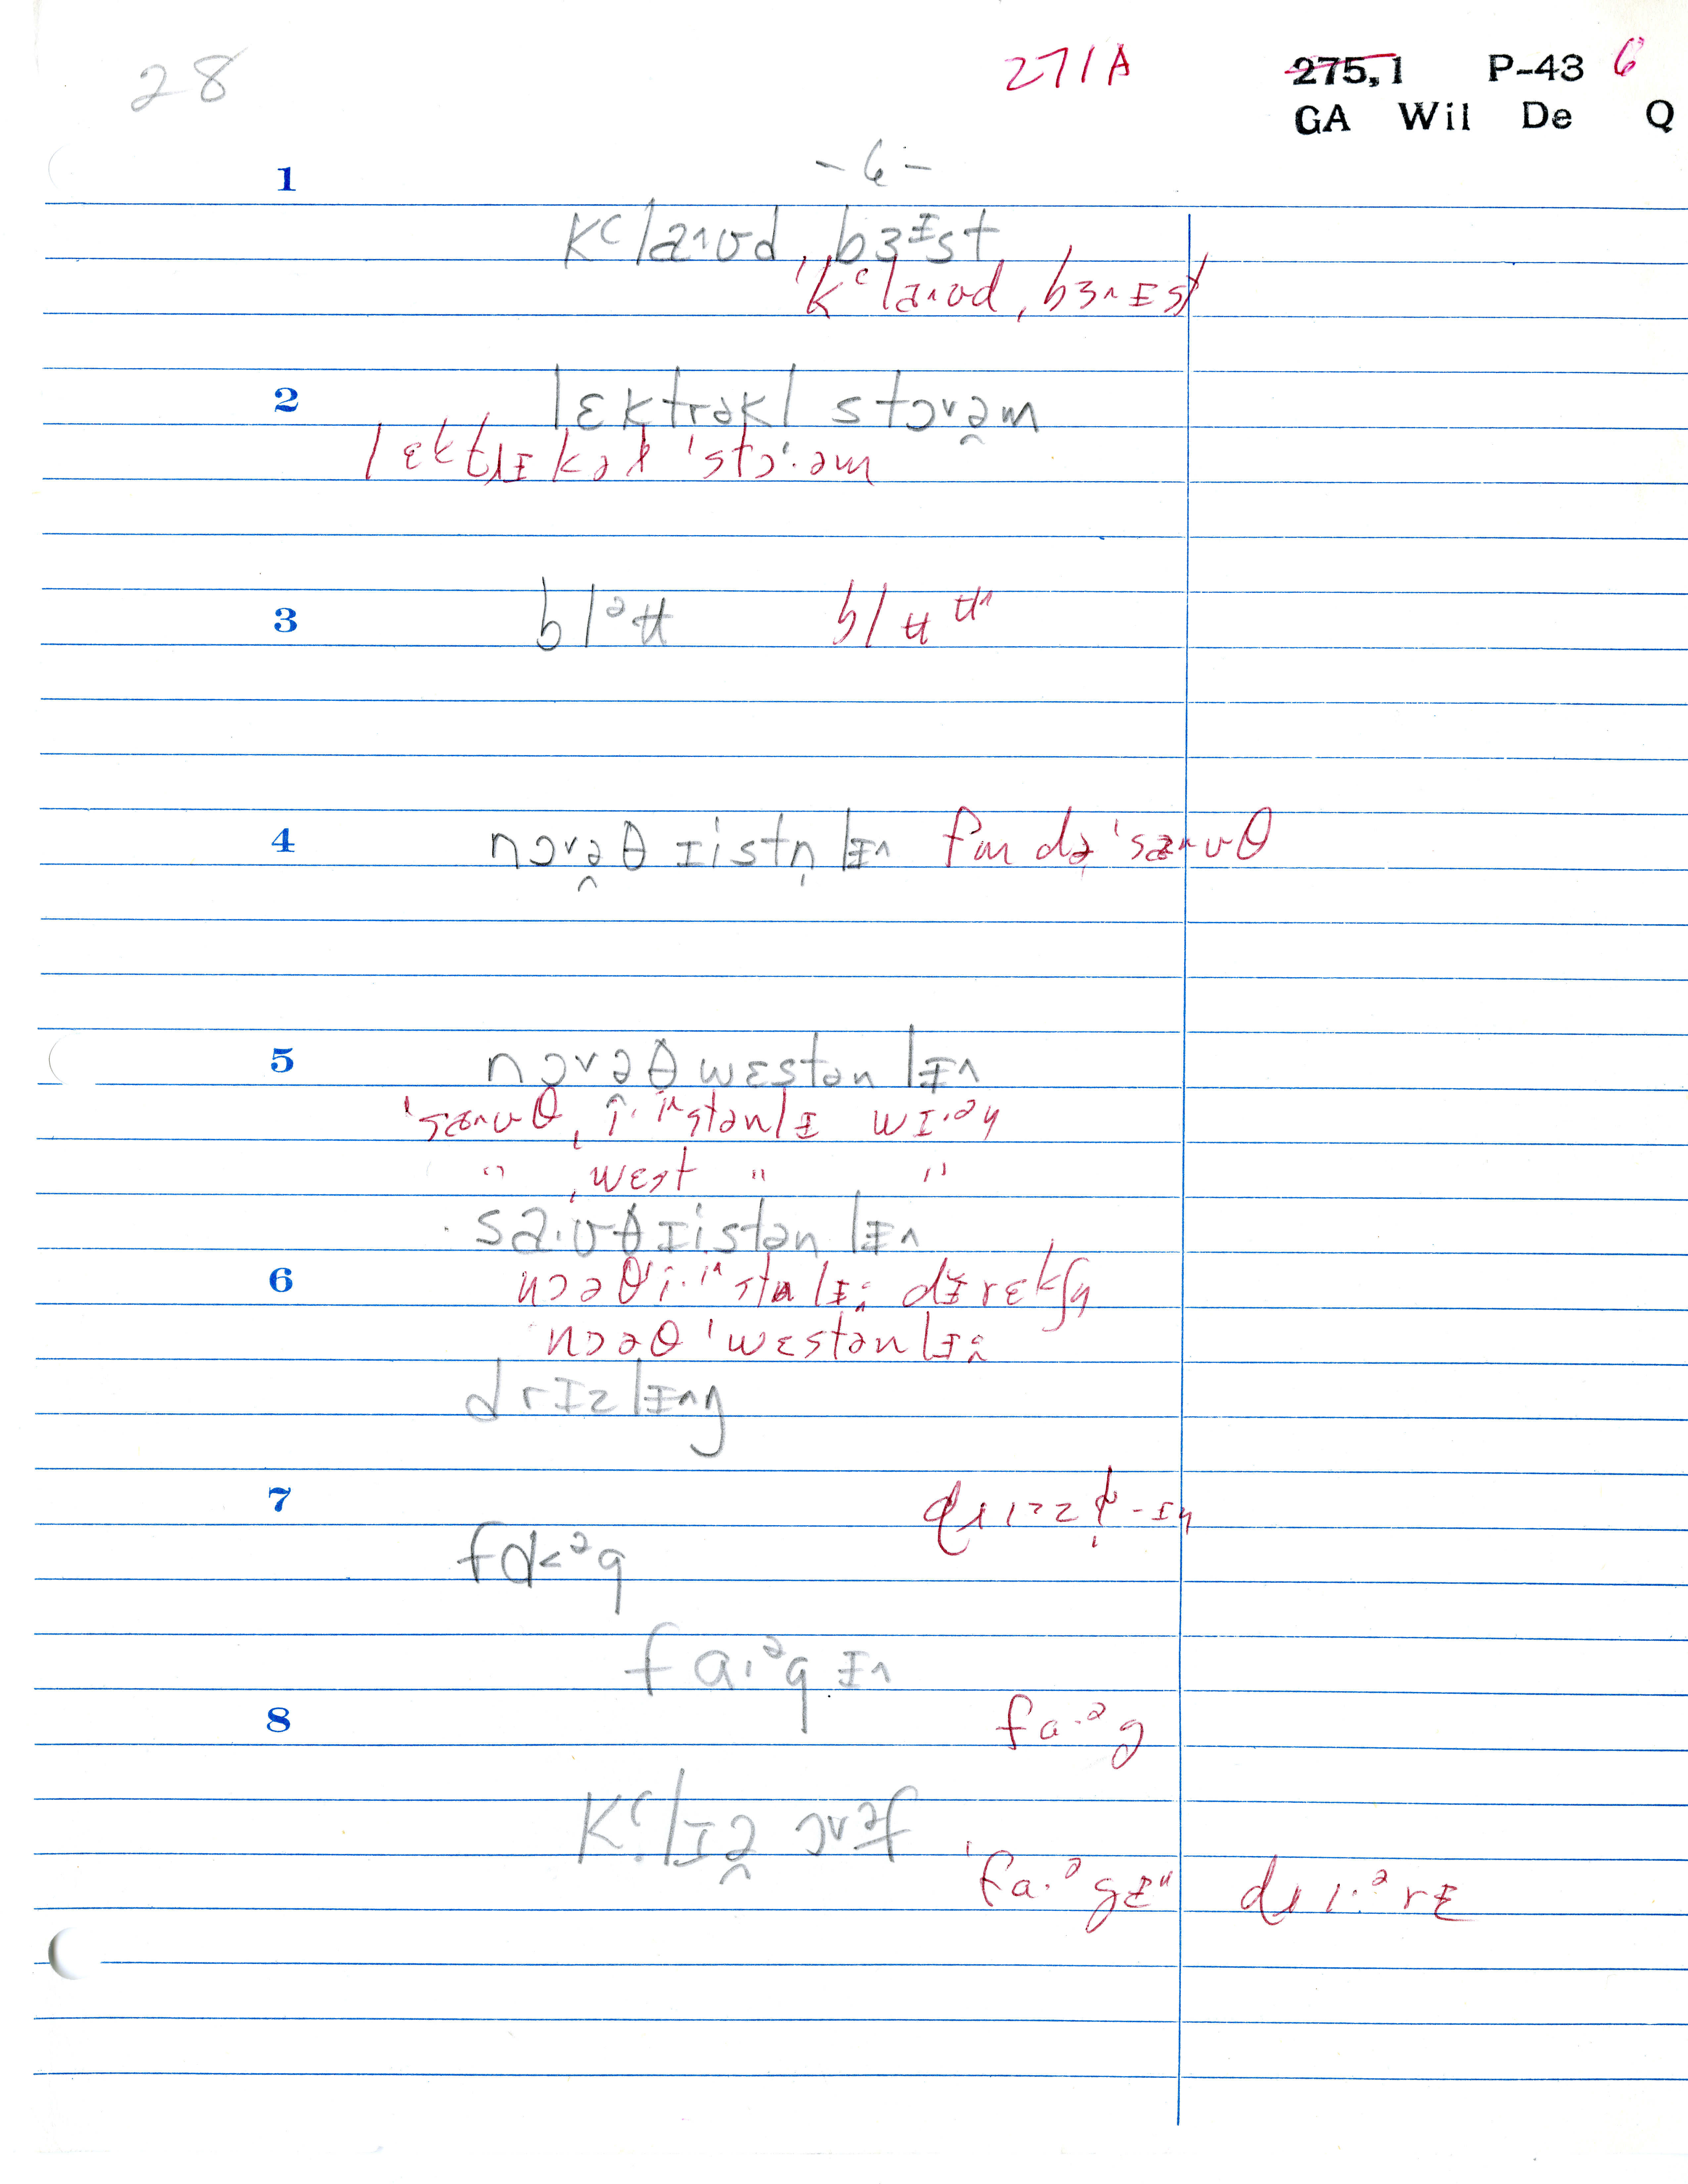 28 271A 275,1 P-43 6
GA Wil De Q
1 -6-
kʿlaˑʌʊd ˌbɜᶦst
ˈkʿlaˑʌʊd ˌbɜʌɪst
2 lɛktrəkl stɔvə̯m
lɛktɹɪkəl ˈstɔˑəm
3 blᵊʉ blʉʉ^
4 nɔvə̯θ ɪistn̩ lɪʌ fɹm də ˈsæʌʊθ
5 nɔvə̯θ wɛstən lɪʌ
ˈsæʌʊθ ˌiˑiʌstənlɪ wɪˑən
" ˌwɛst " "
saˑʊθ ɪistən lɪʌ
6 nɔəθ iˑiʌstnlɪ dɪrɛkʃn
nɔəθ ˈwɛstənlɪ
drɪzlɪʌŋ
7 dɹɪzl̩-ɪŋ
fɑ<ᵊg
fɑˑᵊg ɪʌ
8 fɑˑᵊg
kʿlɪə̯ ɔvəf
ˈfɑˑᵊgɪ dɹɪˑᵊrɪ